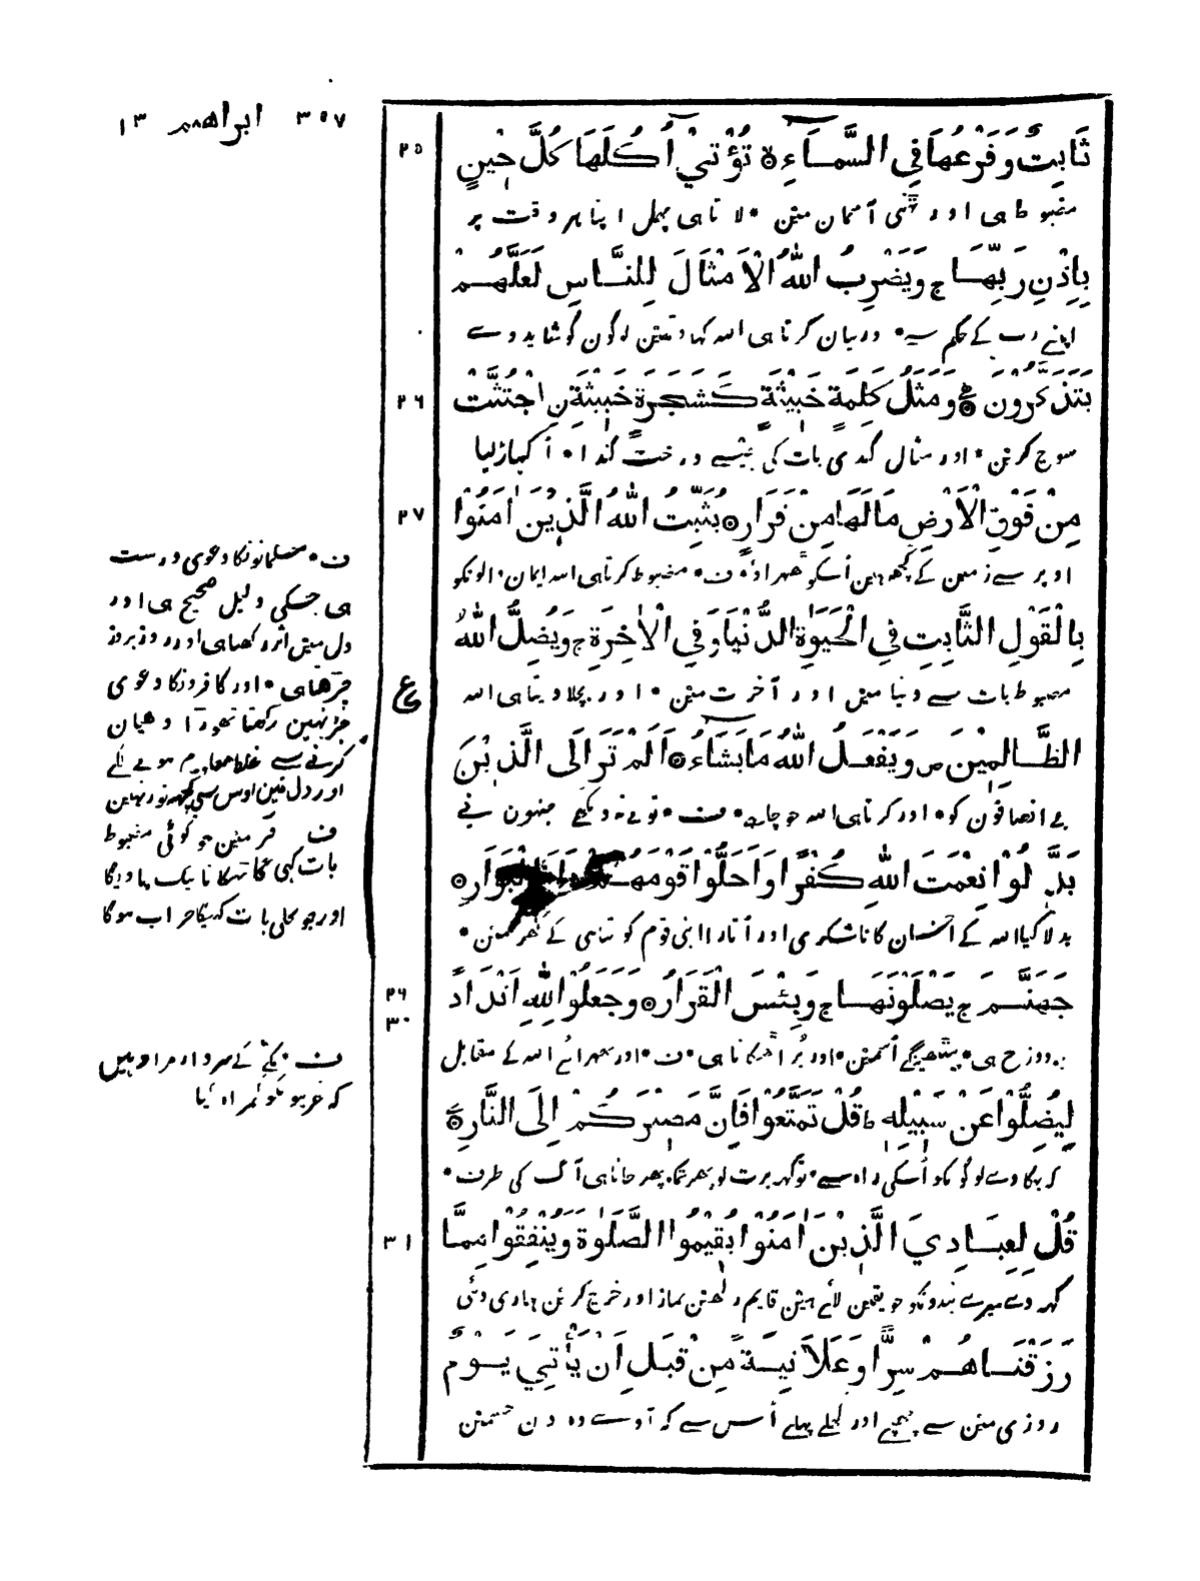 ۳۰۷ ابراهيم ۱۳
ثَابِتٌ وَفَرْعُهَا فِي السَّمَاءِ ۝ تُؤْتِيْ أُكُلَهَا كُلَّ حِيْنٍ
۲۵
مضبوط هی اور ٹہنی آسمان مین • لاتا هی پهل اپنا هر وقت پر
بِاِذْنِ رَبِّهَا ج وَيَضْرِبُ اللّٰهُ الْاَمْثَالَ لِلنَّاسِ لَعَلَّهُمْ
اپنے رب کے حکم سے • اور بیان کرتا هی الله کهاوتین لوگون کو شاید وے
يَتَذَكَّرُوْنَ ۝ وَمَثَلُ كَلِمَةٍ خَبِيْثَةٍ كَشَجَرَةٍ خَبِيْثَةِ نِ اجْتُثَّتْ
۲۶
سوچ کرین • اور مثال گندی بات کی جیسے درخت گندا • اُکهاڑ لیا
مِنْ فَوْقِ الْاَرْضِ مَا لَهَا مِنْ قَرَارٍ ۝ يُثَبِّتُ اللّٰهُ الَّذِيْنَ اٰمَنُوْا
۲۷
اوپر سے زمین کے کچهه نهین اُسکو ٹهہراؤ • ف • مضبوط کرتا هی الله ایمان والونکو
بِالْقَوْلِ الثَّابِتِ فِي الْحَيٰوةِ الدُّنْيَا وَفِي الْاٰخِرَةِ ج وَيُضِلُّ اللّٰهُ
مضبوط بات سے دنیا مین اور آخرت مین • اور بچلا دیتا هی الله
ع
الظَّالِمِيْنَ ص وَيَفْعَلُ اللّٰهُ مَا يَشَاءُ ۝ اَلَمْ تَرَ اِلَى الَّذِيْنَ
بے انصافون کو • اور کرتا هی الله جو چاهے • ف • تونے نه دیکهے جنهون نے
بَدَّلُوْا نِعْمَتَ اللّٰهِ كُفْرًا وَاَحَلُّوْا قَوْمَهُمْ دَارَ الْبَوَارِ ۝
بدلا کیا الله کے احسان کا ناشکری اور اُتارا اپنی قوم کو تباهی کے گهر مین •
جَهَنَّمَ ج يَصْلَوْنَهَا ج وَبِئْسَ الْقَرَارُ ۝ وَجَعَلُوْا لِلّٰهِ اَنْدَادًا
۲۹
۳۰
دوزخ هی • پیٹهینگے اُسمین • اور بُرا ٹهکانا هی • ف • اور ٹهہرائے الله کے مقابل
لِيُضِلُّوْا عَنْ سَبِيْلِهٖ ط قُلْ تَمَتَّعُوْا فَاِنَّ مَصِيْرَكُمْ اِلَى النَّارِ ۝
که بهکاوے لوگونکو اُسکی راه سے • توکهه برت لو پهر تمکو پهر جانا هی آگ کی طرف •
قُلْ لِعِبَادِيَ الَّذِيْنَ اٰمَنُوْا يُقِيْمُوا الصَّلٰوةَ وَيُنْفِقُوْا مِمَّا
۳۱
کهه دے میرے بندونکو جو یقین لائے هین قایم رکهین نماز اور خرچ کرین هماری دئی
رَزَقْنَاهُمْ سِرًّا وَّعَلَانِيَةً مِنْ قَبْلِ اَنْ يَأْتِيَ يَوْمٌ
روزی مین سے چهپے اور کهلے پہلے اُس سے که آوے وه دن جسمین
ف • مسلمانونکا دعوی درست
هی جسکی دلیل صحیح هی اور
دل مین اثر رکهتا هی اور روز بروز
چڑهتا هی • اور کافرونکا دعوی
جڑ نهین رکهتا تهوڑا دهیان
کرنے سے غلط معلوم هونے لگے
اور دل مین اوس سے کچهه نور نهین
ف قبر مین جو کوئی مضبوط
بات کهیگا ٹهکانا نیک پاویگا
اور جو بچلی بات کهیگا خراب هوگا
ف • مکے کے سردار مراد هین
که غریبونکو گمراه کیا